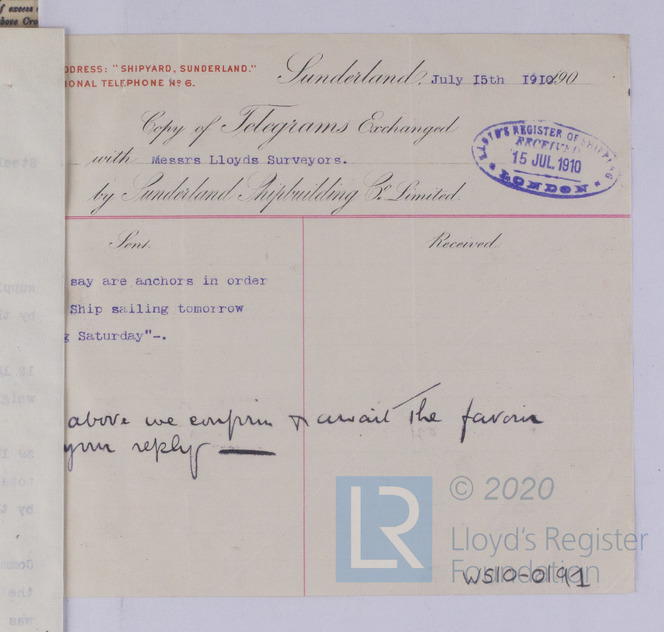 f excess
above Cro
DDRESS: "SHIPYARD, SUNDERLAND."
IONAL TELEPHONE Nº 6.
Sunderland, July 15th 1910 190
Copy of Telegrams Exchanged
with Messrs Lloyds Surveyors.
by Sunderland Shipbuilding Co. Limited.
LLOYD'S REGISTER OF SHIPPING
RECEIVED
15 JUL. 1910
LONDON
Sent. Received.
say are anchors in order
Ship sailing tomorrow
g Saturday"-.
above we confirm & await the favour
your reply
LR
© 2020
Lloyd's Register
Foundation
W510-0191